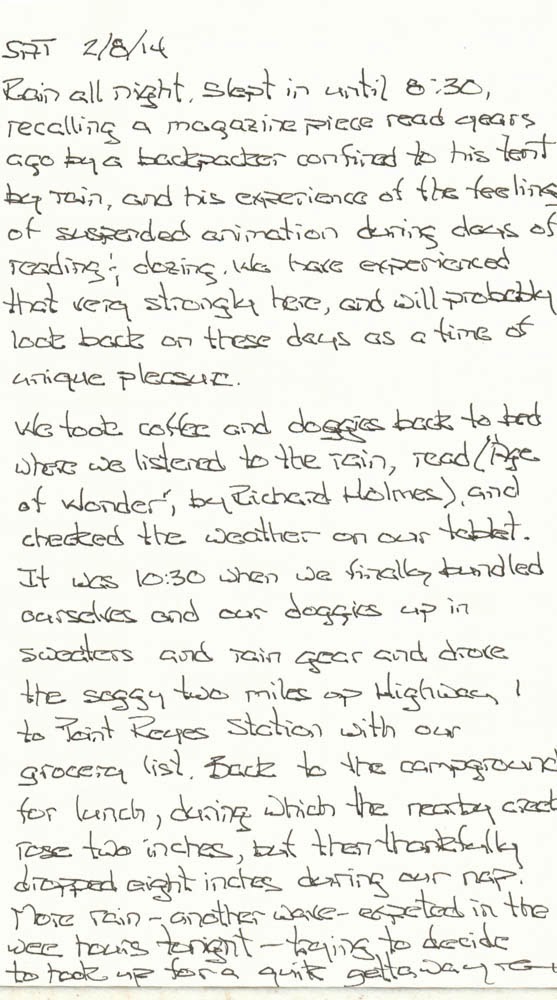 SAT 2/8/14
Rain all night, slept in until 8:30,
recalling a magazine piece read years
ago by a backpacker confined to his tent
by rain, and his experience of the feeling
of suspended animation during days of
reading ; dozing. We have experienced
that very strongly here, and will probably
look back on these days as a time of
unique pleasure.
We took coffee and doggies back to bed
where we listened to the rain, read ("Age
of Wonder", by Richard Holmes), and
checked the weather on our tablet.
It was 10:30 when we finally bundled
ourselves and our doggies up in
sweaters and rain gear and drove
the soggy two miles up Highway 1
to Point Reyes Station with our
grocery list. Back to the campground
for lunch, during which the nearby creek
rose two inches, but then thankfully
dropped eight inches during our nap!
More rain - another wave - expected in the
wee hours tonight - trying to decide
to hook up for a quik gettaway